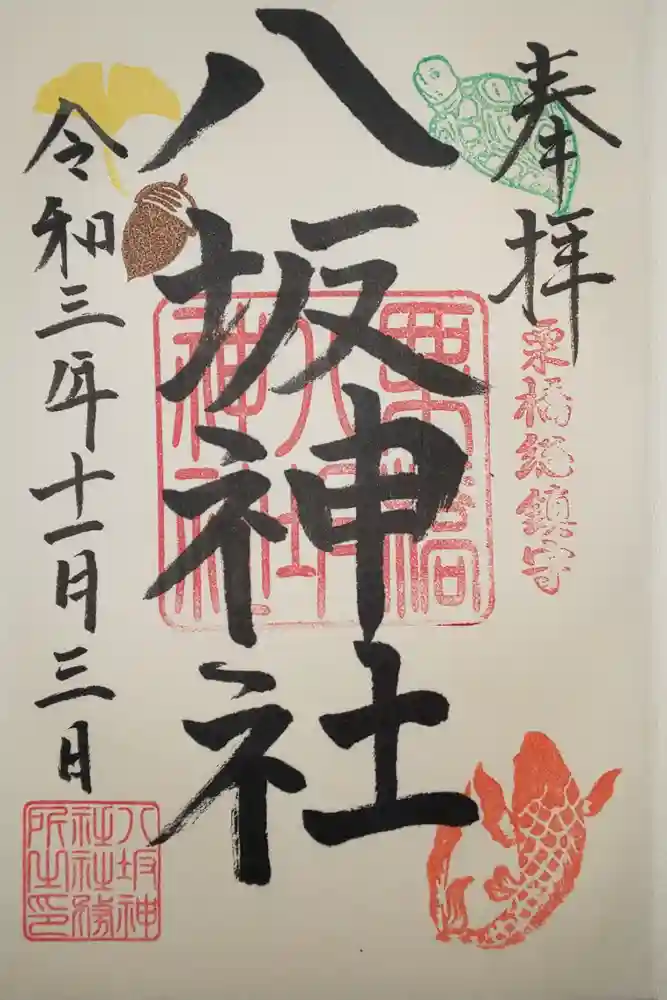 奉拝
栗橋総鎮守
八坂神社
栗橋八坂神社
令和三年十一月三日
八坂神社社務所之印